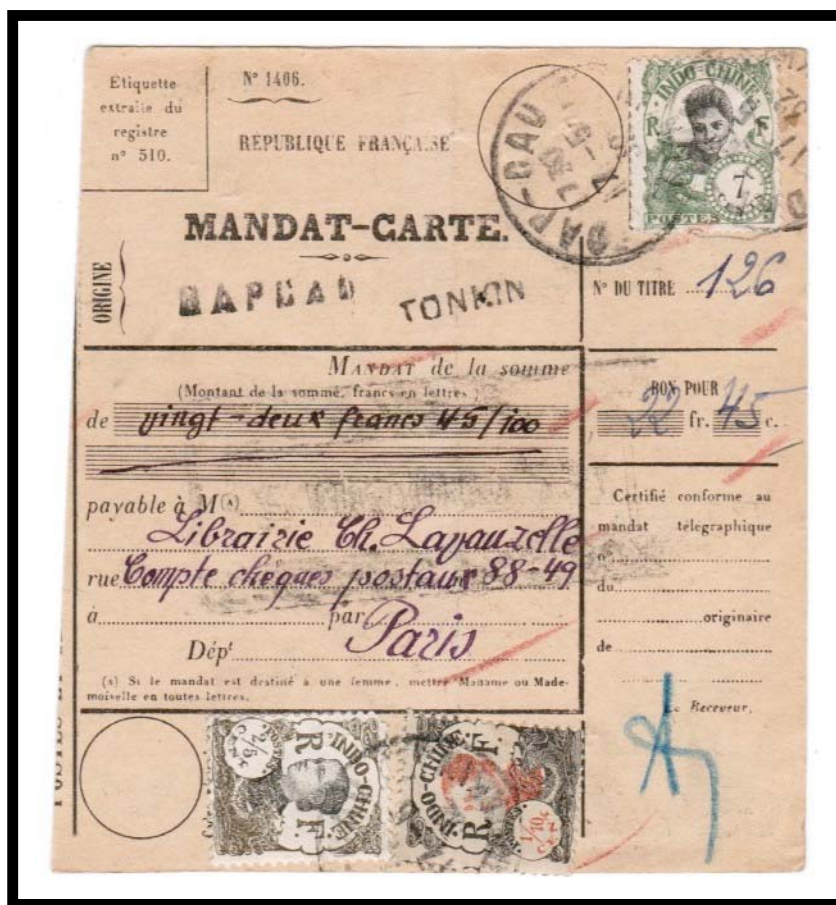 Etiquette
extraite du
registre
n° 510.
N° 1406.
REPUBLIQUE FRANÇAISE
MANDAT-CARTE.
ORIGINE
BAPCAD TONKIN
DAP-CAU
INDO-CHINE
R F
7
POSTES
N° DU TITRE 126
MANDAT de la somme
(Montant de la somme, francs en lettres)
de vingt-deux francs 45/100
BON POUR
22 fr. 45 c.
payable à M(a)
Librairie Ch. Lavauzelle
rue Compte chèques postaux 88-49
à par Paris
Dépt
(a) Si le mandat est destiné à une femme, mettre Madame ou Made-
moiselle en toutes lettres.
Certifié conforme au
mandat télégraphique
n°
du
originaire
de
Le Receveur,
INDO-CHINE
R F
POSTES
1/5 CENT
INDO-CHINE
R F
1/10